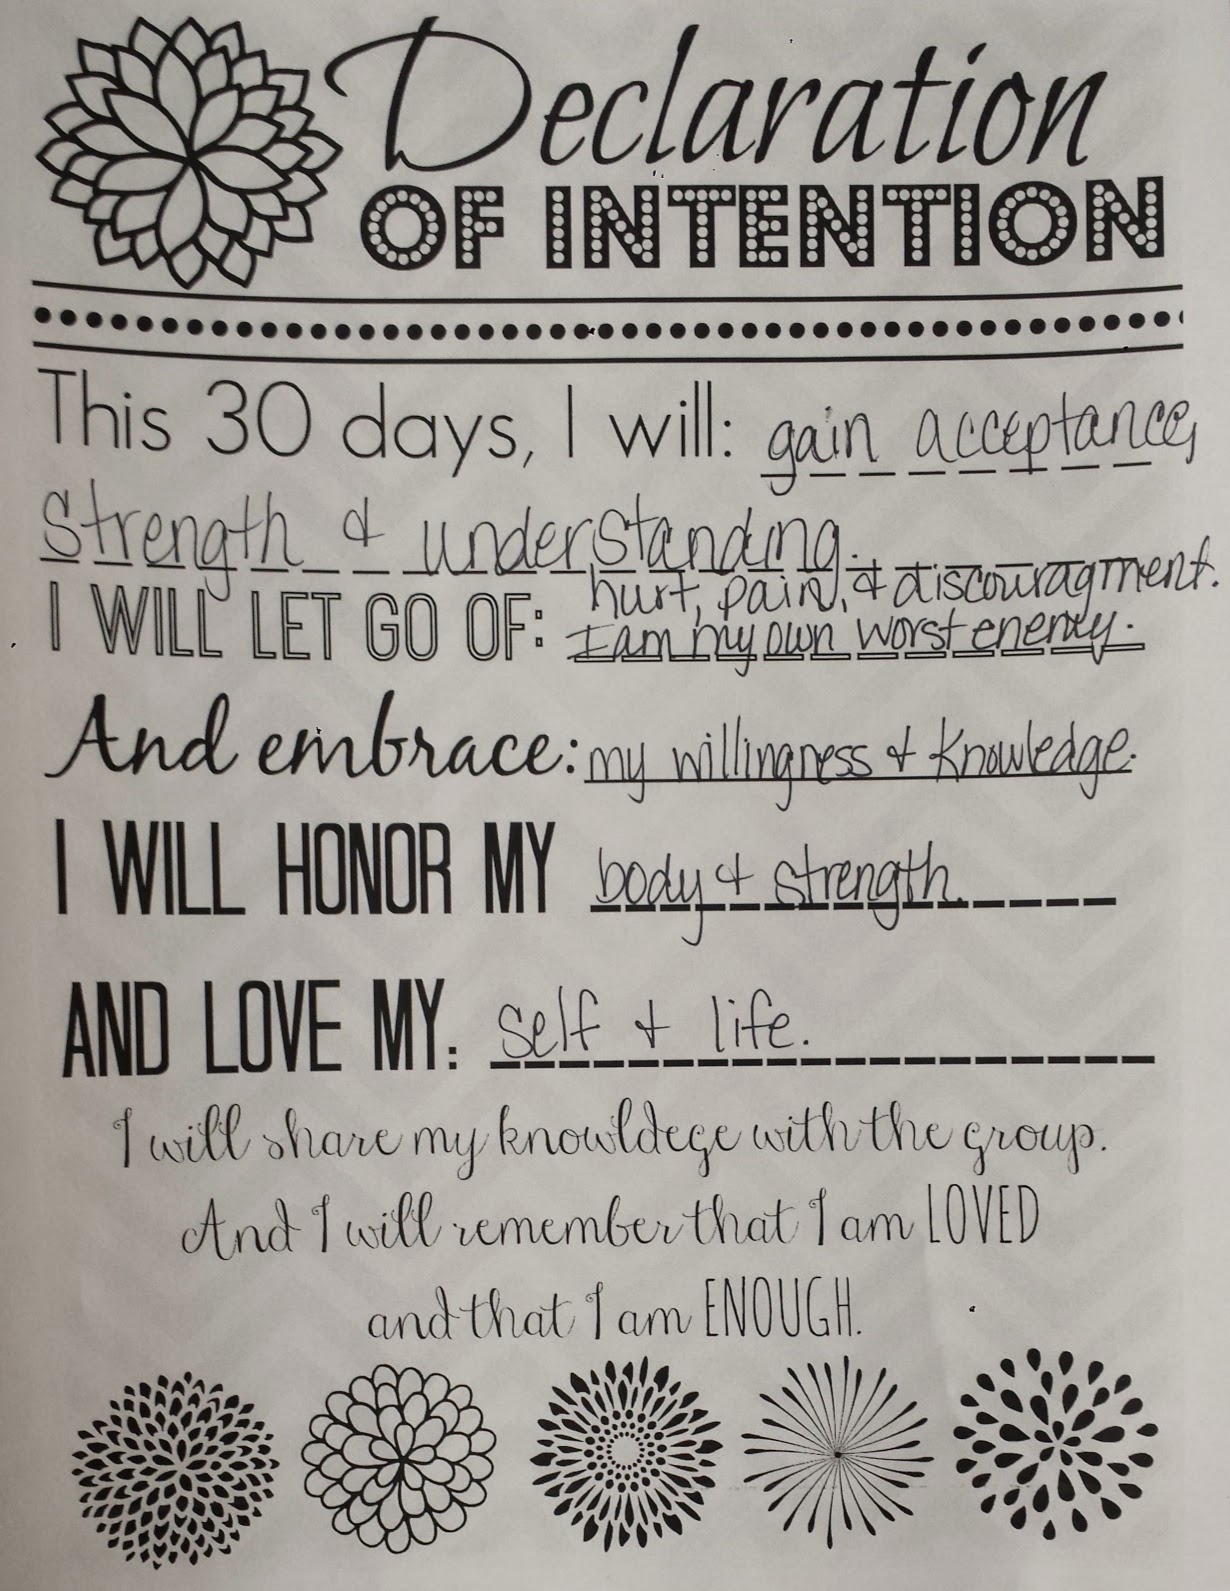 Declaration
OF INTENTION
This 30 days, I will: gain acceptance,
Strength & understanding.
hurt, pain, & discouragment.
I WILL LET GO OF: I am my own worst enemy.
And embrace: my willingness & knowledge.
I WILL HONOR MY body & strength.
AND LOVE MY: self & life.
I will share my knowldege with the group.
And I will remember that I am LOVED
and that I am ENOUGH.